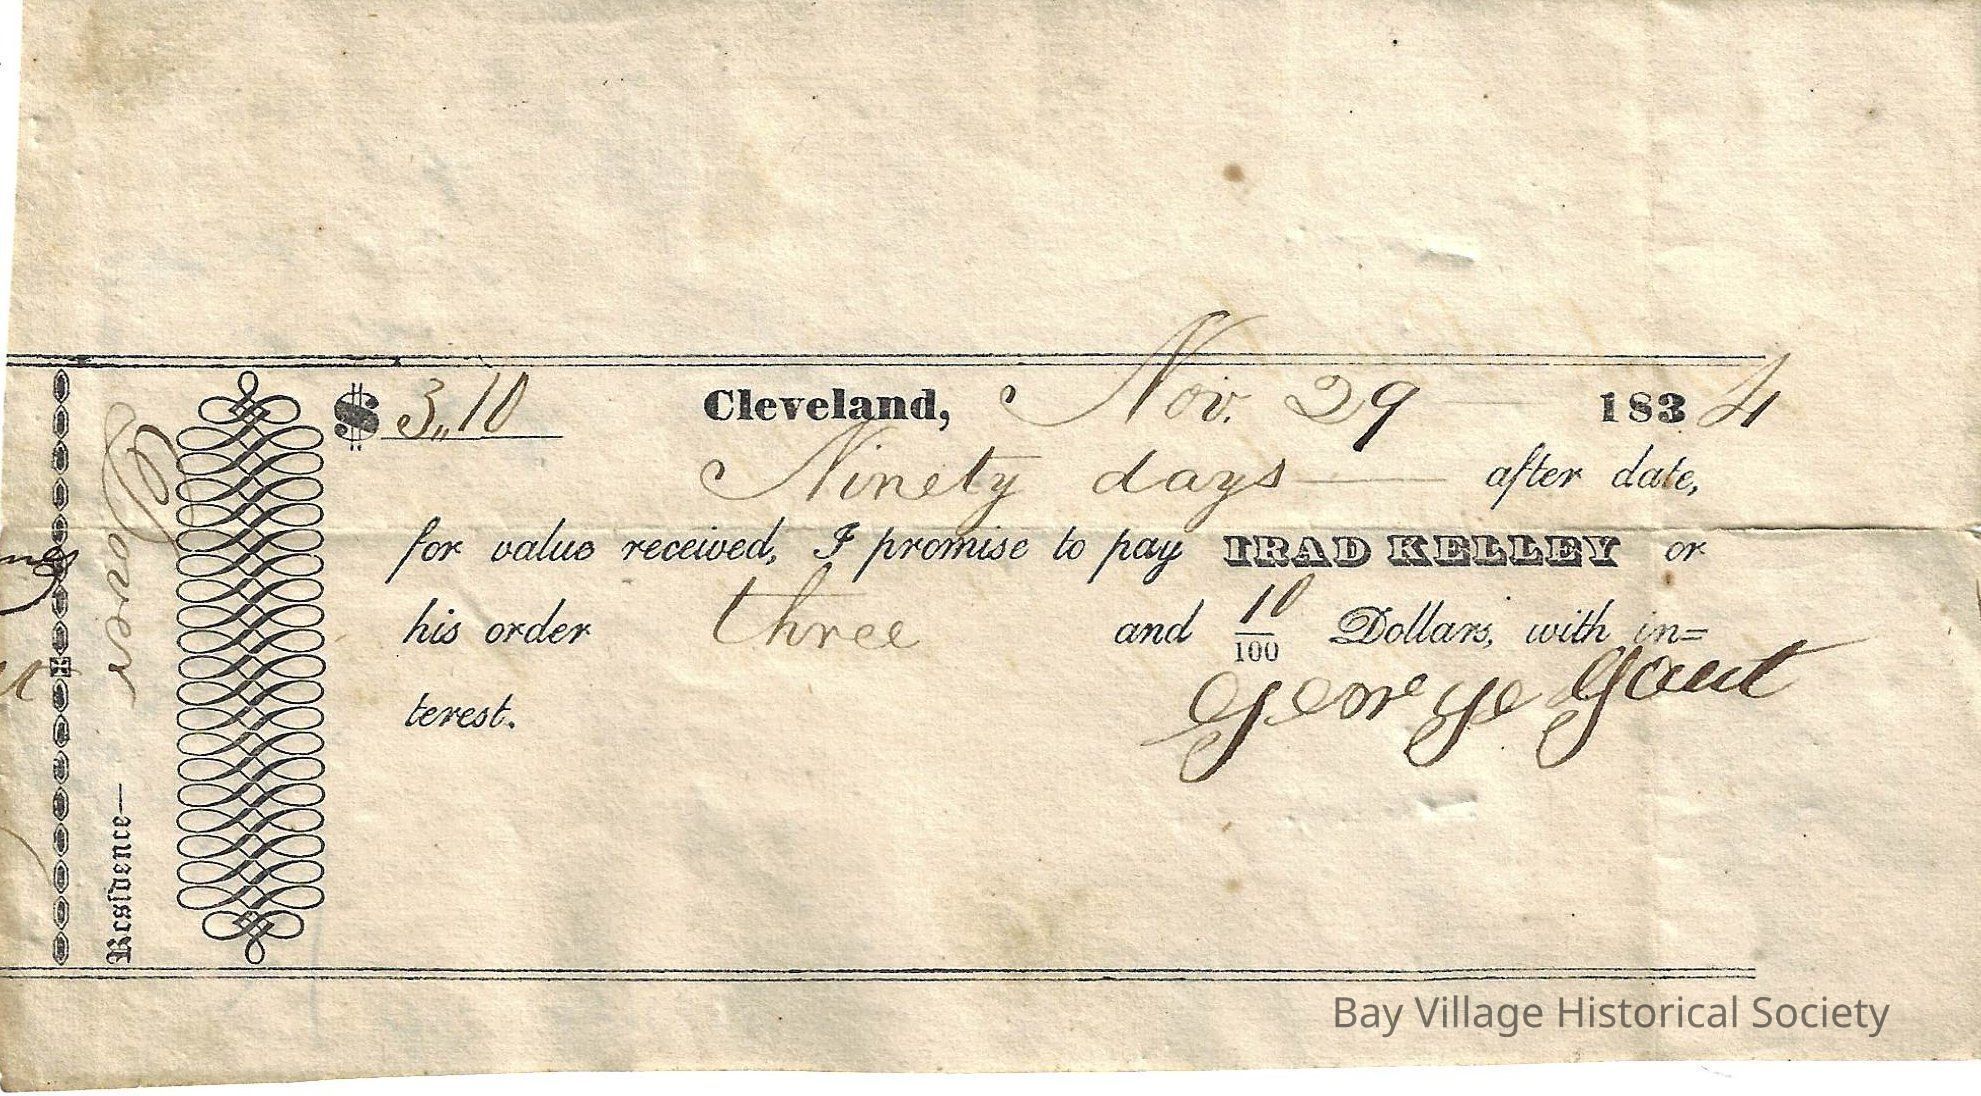 $ 3,,10 Cleveland, Nov. 29 1834
Ninety days after date,
for value received, I promise to pay IRAD KELLEY or
his order three and 10/100 Dollars, with in=
terest.
George Gaut
Residence—Dover
Bay Village Historical Society